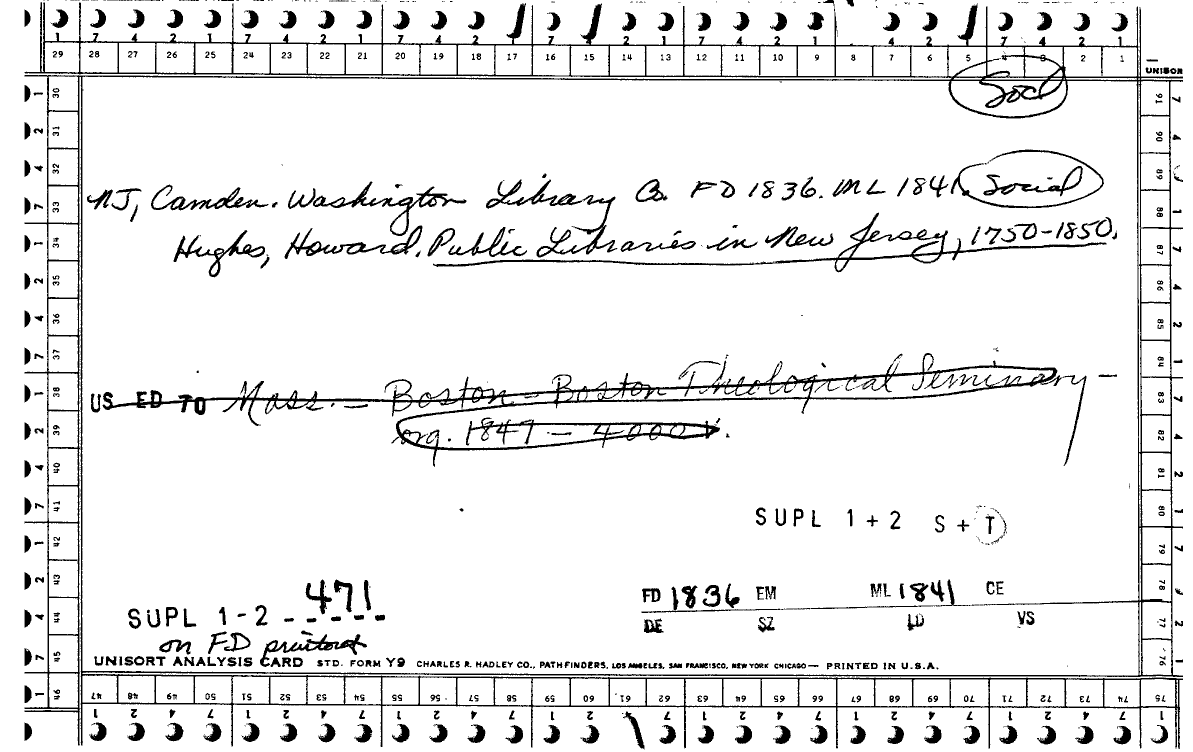 1 7 4 2 1 7 4 2 1 7 4 2 1 7 4 2 1 7 4 2 1 7 4 2 1 7 4 2 1
29 28 27 26 25 24 23 22 21 20 19 18 17 16 15 14 13 12 11 10 9 8 7 6 5 4 3 2 1
UNISOR
Socl
NJ, Camden. Washington Library Co. FD 1836. ML 1841. Social
Hughes, Howard. Public Libraries in New Jersey, 1750-1850.
US ED TO Mass. — Boston — Boston Theological Seminary —
org. 1847 — 4000 V.
SUPL 1+2 S+T
471
SUPL 1-2 - - - - -
on FD printout
FD 1836 EM ML 1841 CE
DE SZ LD VS
UNISORT ANALYSIS CARD STD. FORM Y9 CHARLES R. HADLEY CO., PATHFINDERS, LOS ANGELES, SAN FRANCISCO, NEW YORK CHICAGO — PRINTED IN U.S.A.
30 31 32 33 34 35 36 37 38 39 40 41 42 43 44 45 46
91 90 89 88 87 86 85 84 83 82 81 80 79 78 77 76
47 48 49 50 51 52 53 54 55 56 57 58 59 60 61 62 63 64 65 66 67 68 69 70 71 72 73 74 75